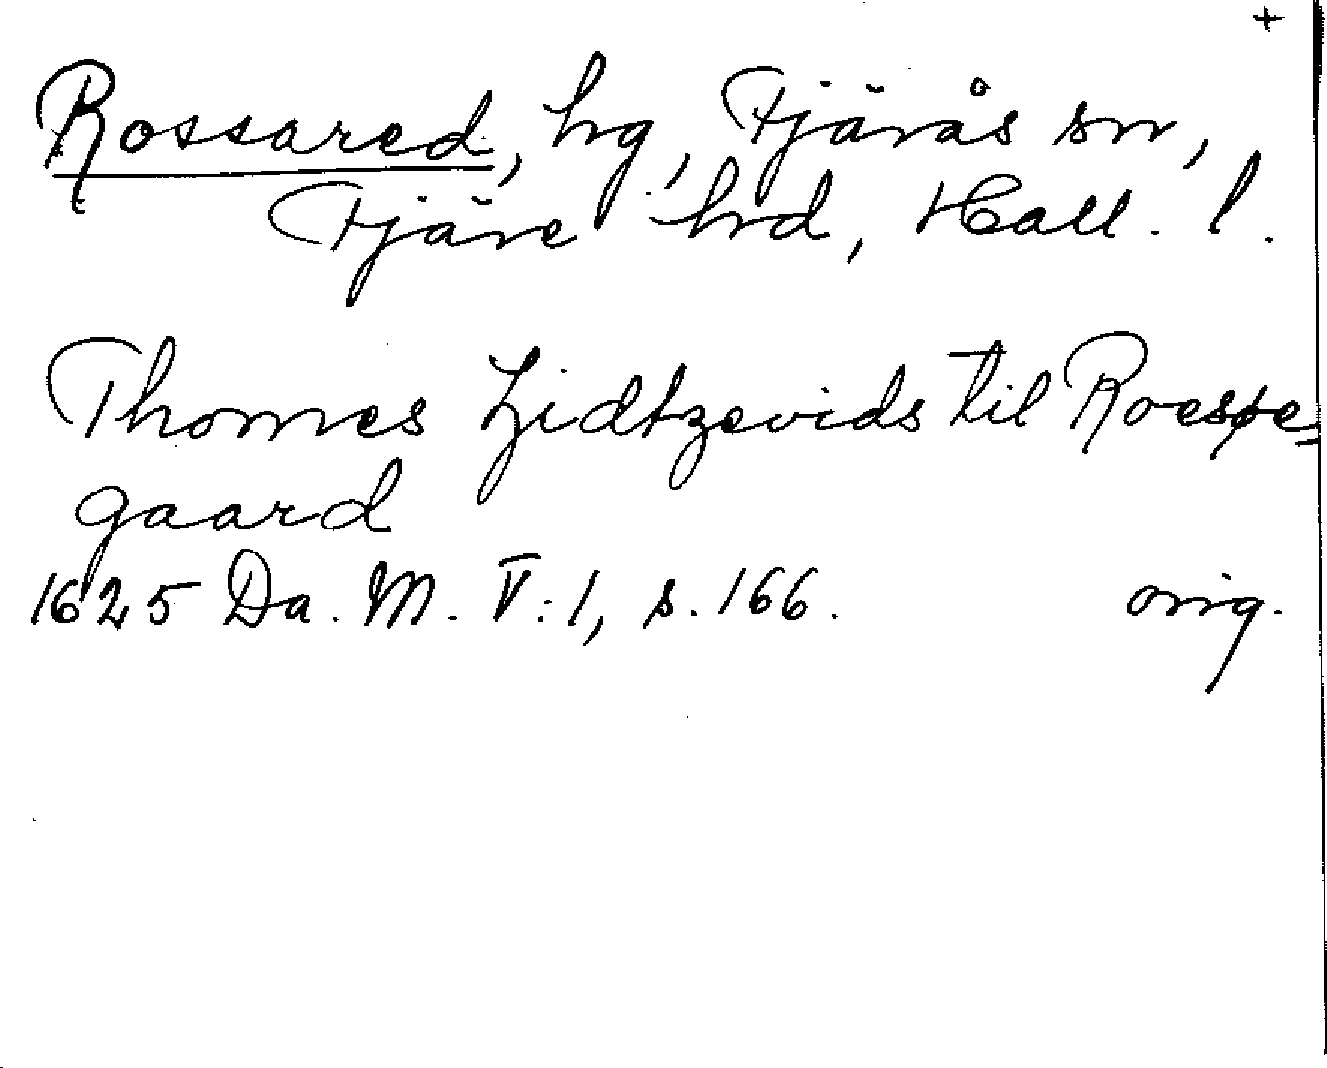 +
Rossared, hg, Fjärås sn,
Fjäre hrd, Hall. l.
Thomes Lidtzevids til Roesøe-
gaard
1625 Da. M. V:1, s. 166. orig.